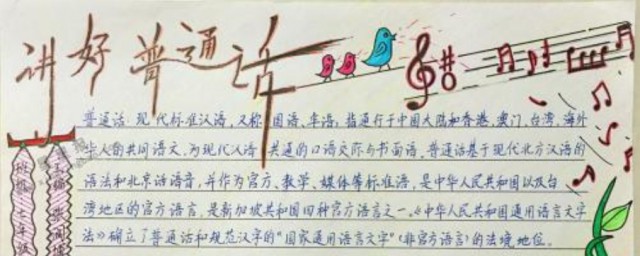 讲好普通话
普通话,现代标准汉语,又称国语、华语,指通行于中国大陆和香港、澳门、台湾、海外
华人的共同语文,为现代汉语共通的口语交际与书面语。普通话基于现代北方汉语的
语法和北京话语音,并作为官方、教学、媒体等标准语,是中华人民共和国以及台
湾地区的官方语言,是新加坡共和国四种官方语言之一。《中华人民共和国通用语言文字
法》确立了普通话和规范汉字的“国家通用语言文字”(非官方语言)的法境地位。